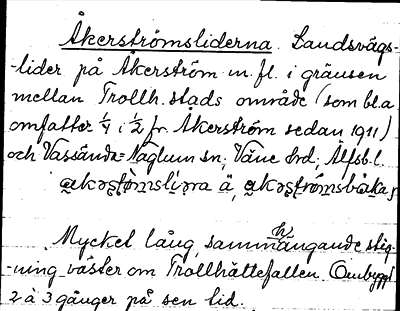 Åkerströmsliderna. Landsvägs-
-lider på Åkerström m.fl. i gränsen
mellan Trollh. stads område (som bl.a
omfatter ¼ i ½ fr. Åkerström sedan 1911)
och Vassända=Naglum sn, Väne hrd, Älfsb.l.
Myckel lång, sammanhängande stig-
-ning väster om Trollhättefallen. Ombyggd
2 à 3 gånger på sen tid.